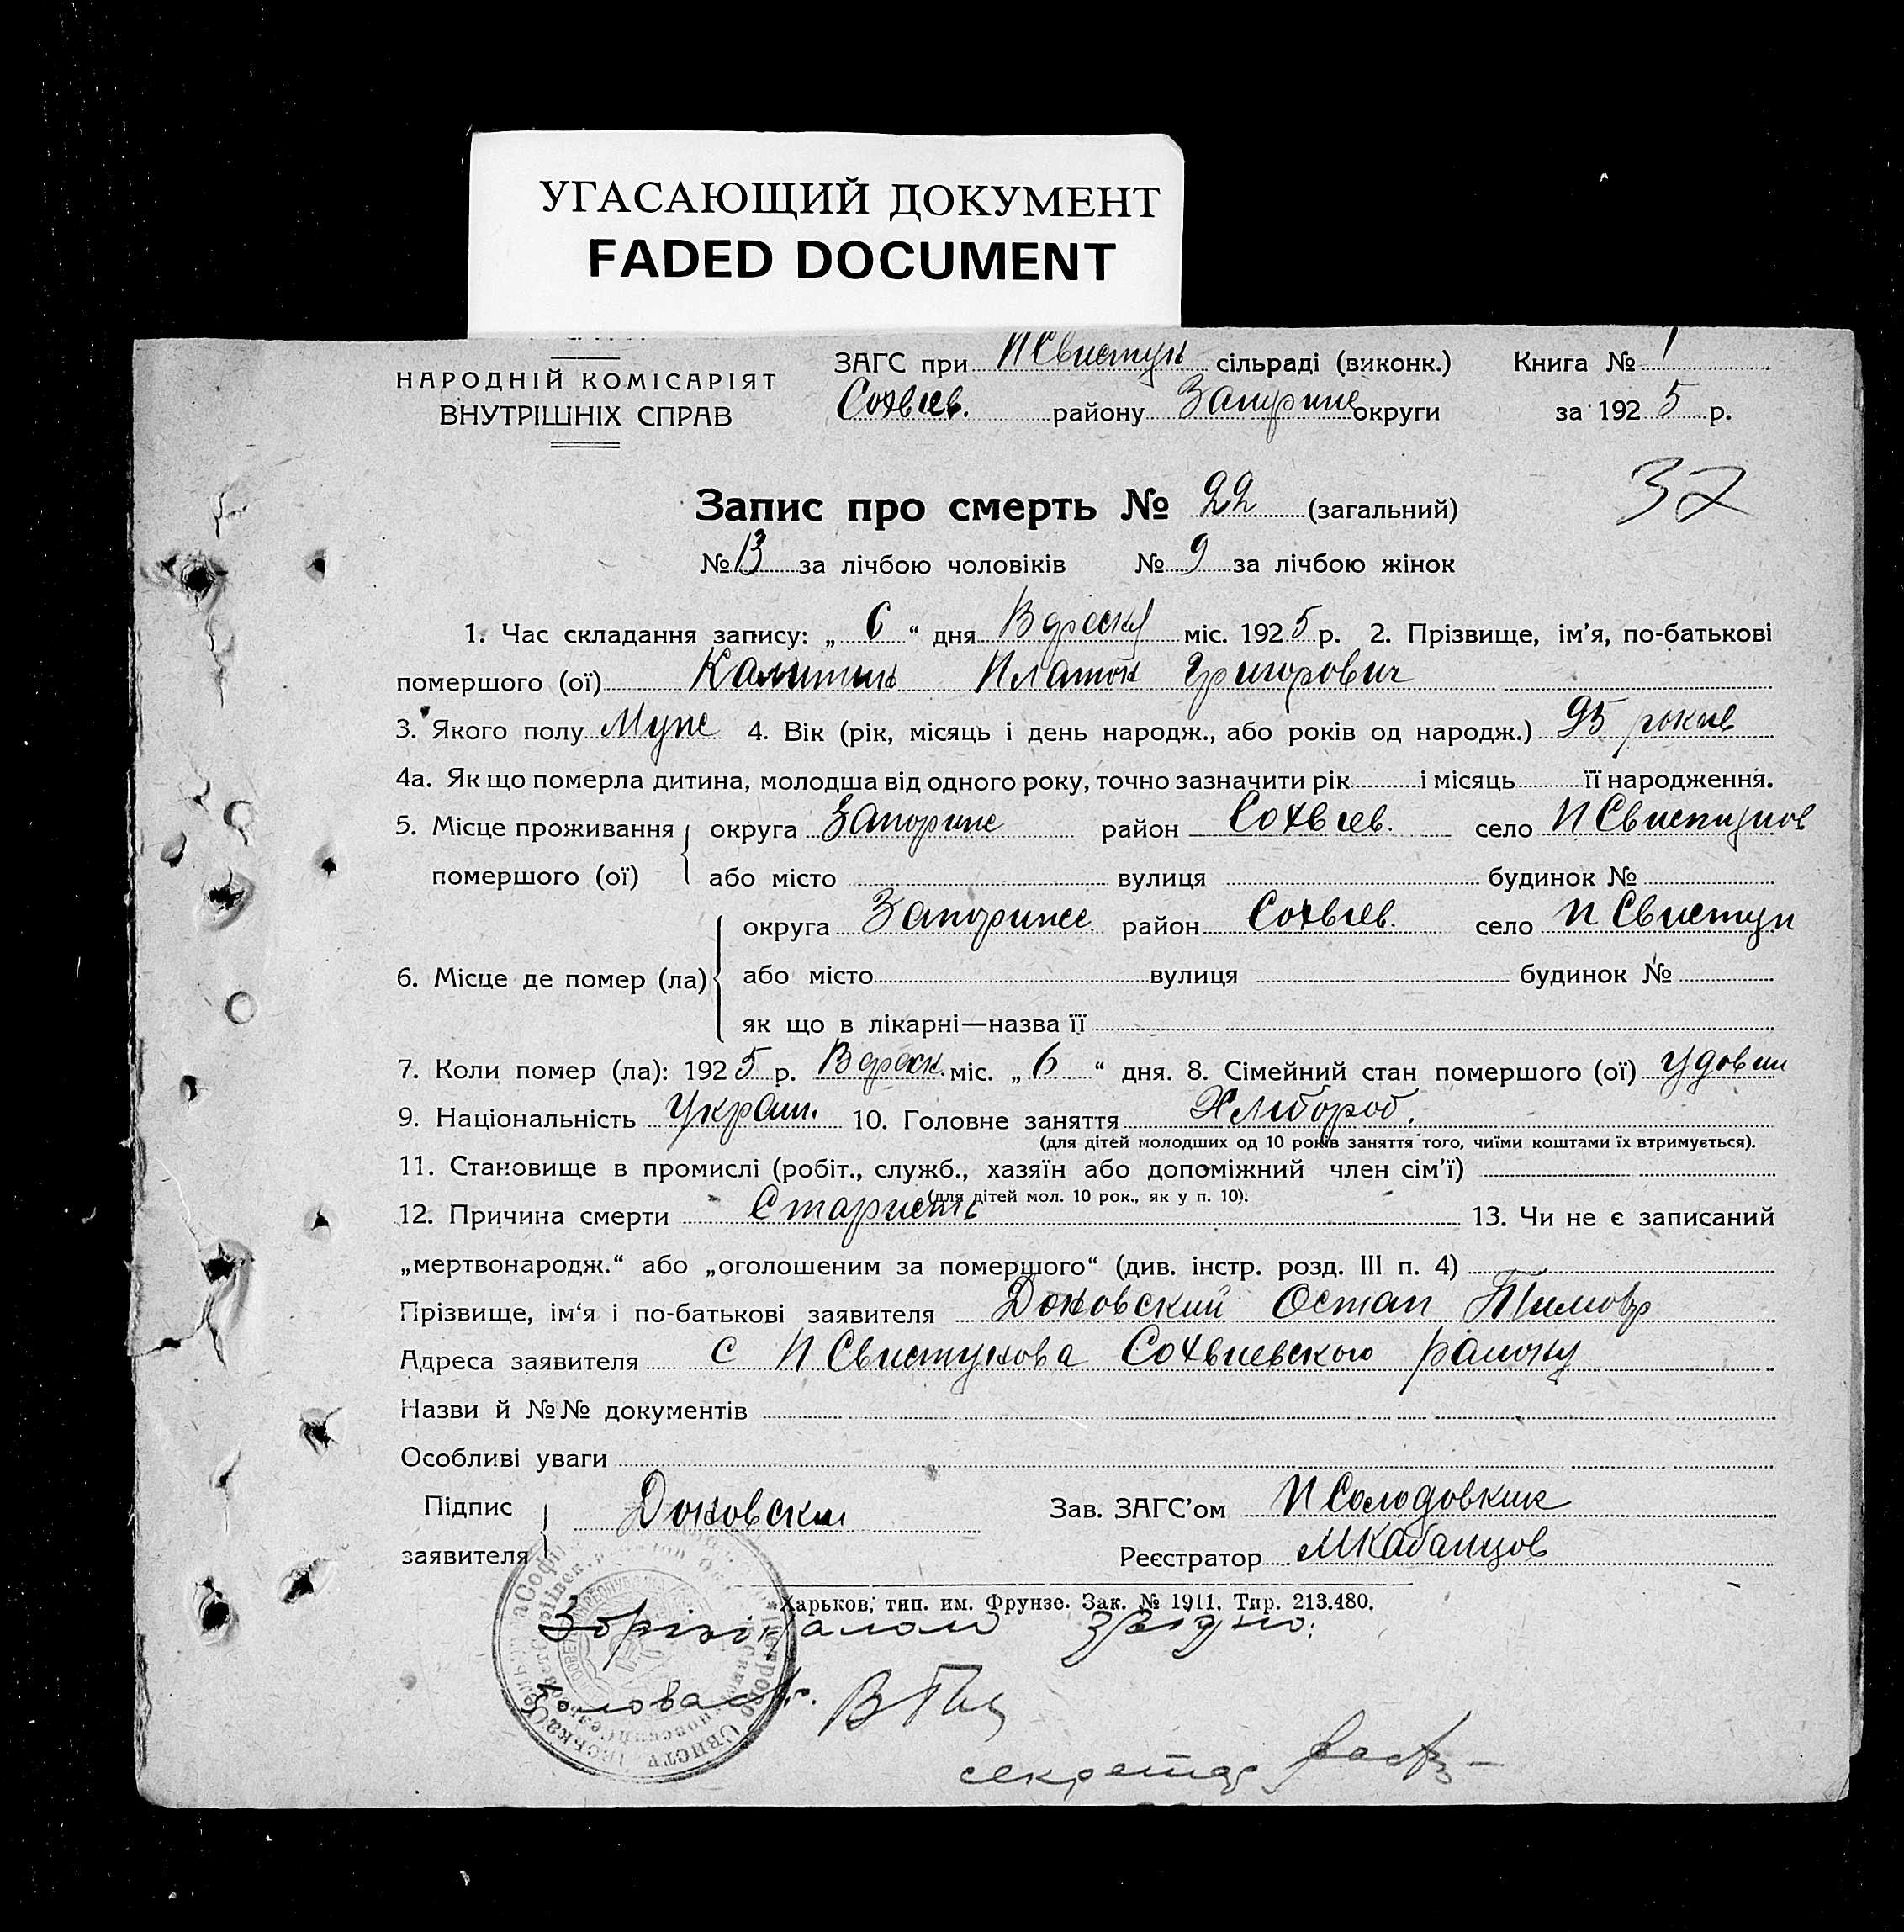 УГАСАЮЩИЙ ДОКУМЕНТ
FADED DOCUMENT
НАРОДНІЙ КОМІСАРІЯТ
ВНУТРІШНІХ СПРАВ
ЗАГС при П Свистун сільраді (виконк.) Книга № 1
Софвіев. району Запориж округи за 1925 р.
37
Запис про смерть № 22 (загальний)
№ 13 за лічбою чоловіків № 9 за лічбою жінок
1. Час складання запису: „ 6 “ дня міс. 1925 р. 2. Прізвище, ім'я, по-батькові
помершого (ої) Калитин Платон Григорович
3. Якого полу Муж 4. Вік (рік, місяць і день народж., або років од народж.) 95 роков
4а. Як що померла дитина, молодша від одного року, точно зазначити рік і місяць її народження.
5. Місце проживання округа Запориж район Софвиев. село П Свистунов
помершого (ої) або місто вулиця будинок №
округа Запориже район Софвиев. село П Свистун
6. Місце де помер (ла) або місто вулиця будинок №
як що в лікарні—назва її
7. Коли помер (ла): 1925 р. міс. „ 6 “ дня. 8. Сімейний стан помершого (ої) удовий
9. Національність Украин. 10. Головне заняття Хлибороб.
(для дітей молодших од 10 років заняття того, чиїми коштами їх втримується).
11. Становище в промислі (робіт., служб., хазяїн або допоміжний член сім'ї)
(для дітей мол. 10 рок., як у п. 10).
12. Причина смерти Старисть 13. Чи не є записаний
„мертвонародж.“ або „оголошеним за помершого“ (див. інстр. розд. III п. 4)
Прізвище, ім'я і по-батькові заявителя Доновский Остап Тимофр
Адреса заявителя с П Свистунова Софвиевского району
Назви й №№ документів
Особливі уваги
Підпис заявителя Доновски Зав. ЗАГС'ом П Солодовник
Реєстратор М Кабанцов
Харьков, тип. им. Фрунзе. Зак. № 1911. Тир. 213.480.
З орігіналом згідно:
Голова
секретар